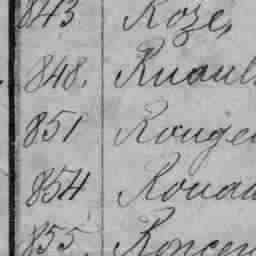 843 Roze,
848. Ruaul
851 Rouge
854 Rouau
855. Roncer